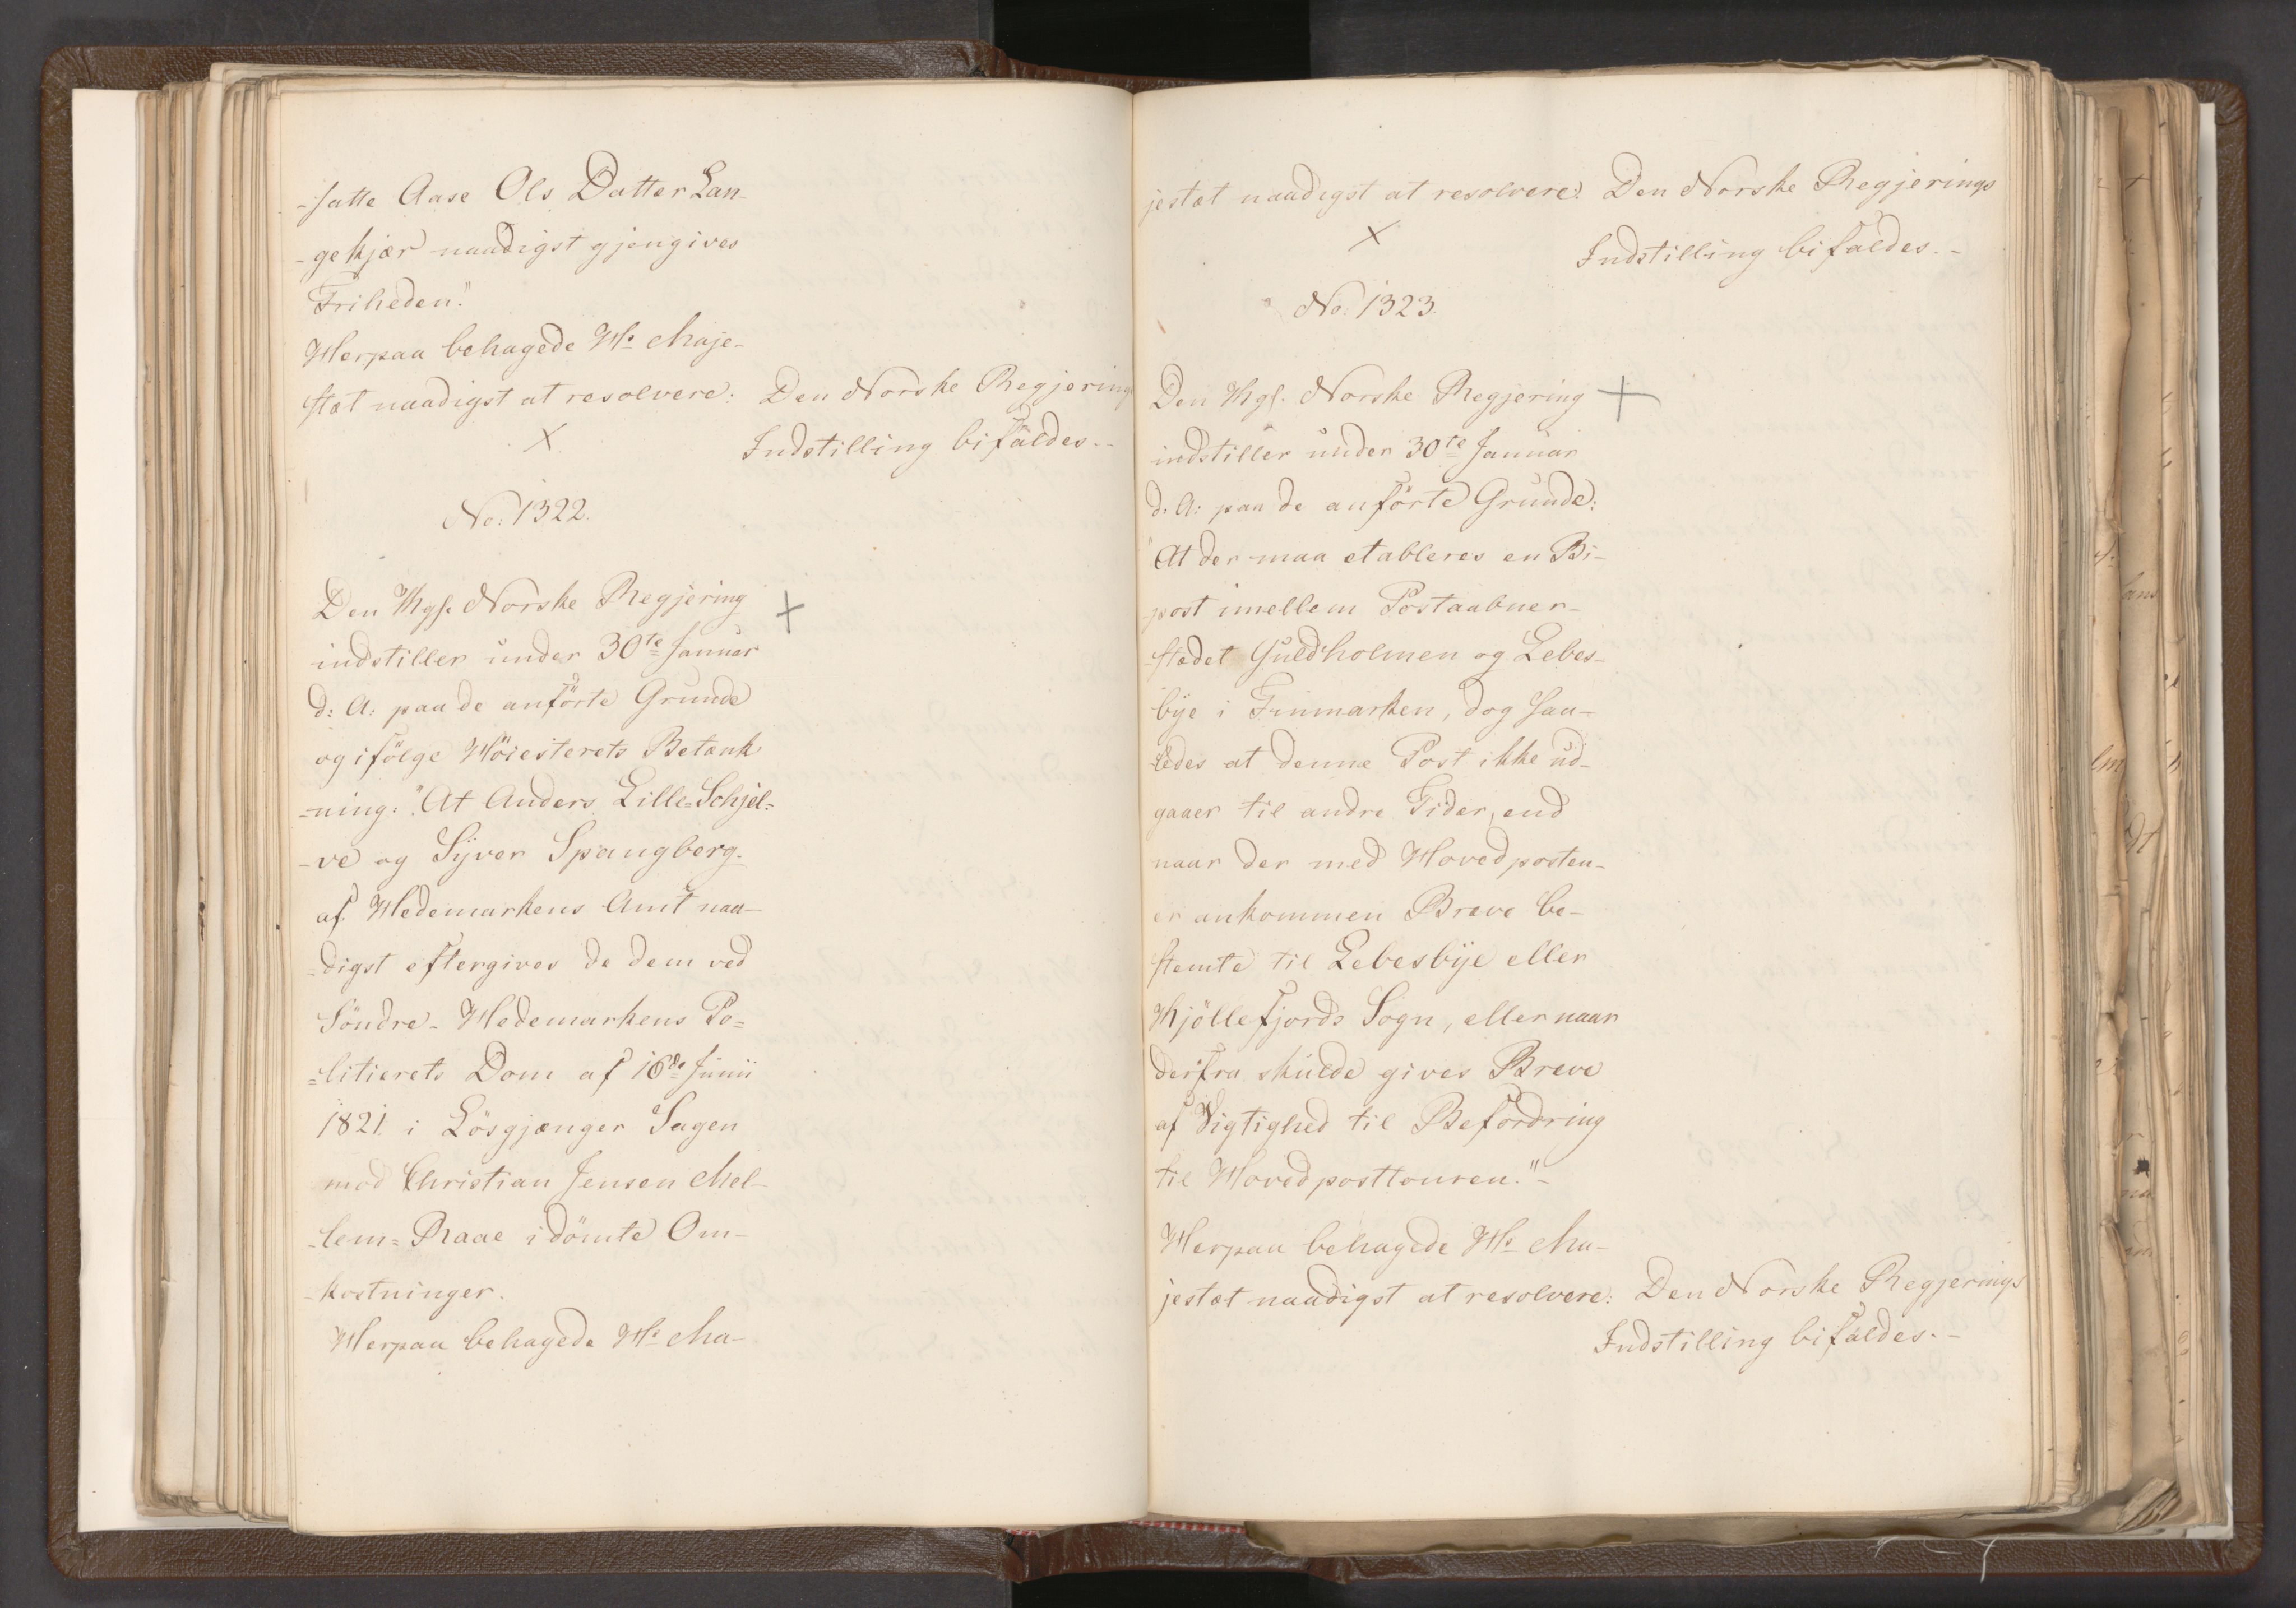 -satte Aase Ols Datter Lan-
-gekjær naadigst gjengives
Friheden."
Herpaa behagede Hs Maje-
stæt naadigst at resolvere: Den Norske Regjerings
Indstilling bifaldes.-
No: 1322.
Den Kgs. Norske Regjering
indstiller under 30te Januar
d: A: paa de anförte Grunde
og ifölge Höiesterets Betænk
-ning: "At Anders Lille-Schjel-
-ve og Syver Spangberg
af Hedemarkens Amt naa-
-digst eftergives de dem ved
Söndre-Hedemarkens Po-
-litierets Dom af 16de Junii
1821. i Lösgjænger Sagen
mod Christian Jensen Mel-
-lem-Raae idömte Om-
-kostninger.
Herpaa behagede Hs Ma-
jestæt naadigst at resolvere: Den Norske Regjerings
Indstilling bifaldes.-
No: 1323.
Den Kgs. Norske Regjering
indstiller under 30te Januar
d: A: paa de anförte Grunde:
"At der maa etableres en Bi-
-post imellem Postaabner-
-stædet Guldholmen og Lebes-
bye i Finmarken, dog saa-
-ledes at denne Post ikke ud-
gaaer til andre Tider, end
naar der med Hovedposten
er ankommen Breve be-
stemte til Lebesbye eller
Kjöllefjords Sogn, eller naar
derfra skulde gives Breve
af Vigtighed til Befordring
til Hovedposttouren."-
Herpaa behagede Hs Ma-
jestæt naadigst at resolvere: Den Norske Regjerings
Indstilling bifaldes.-